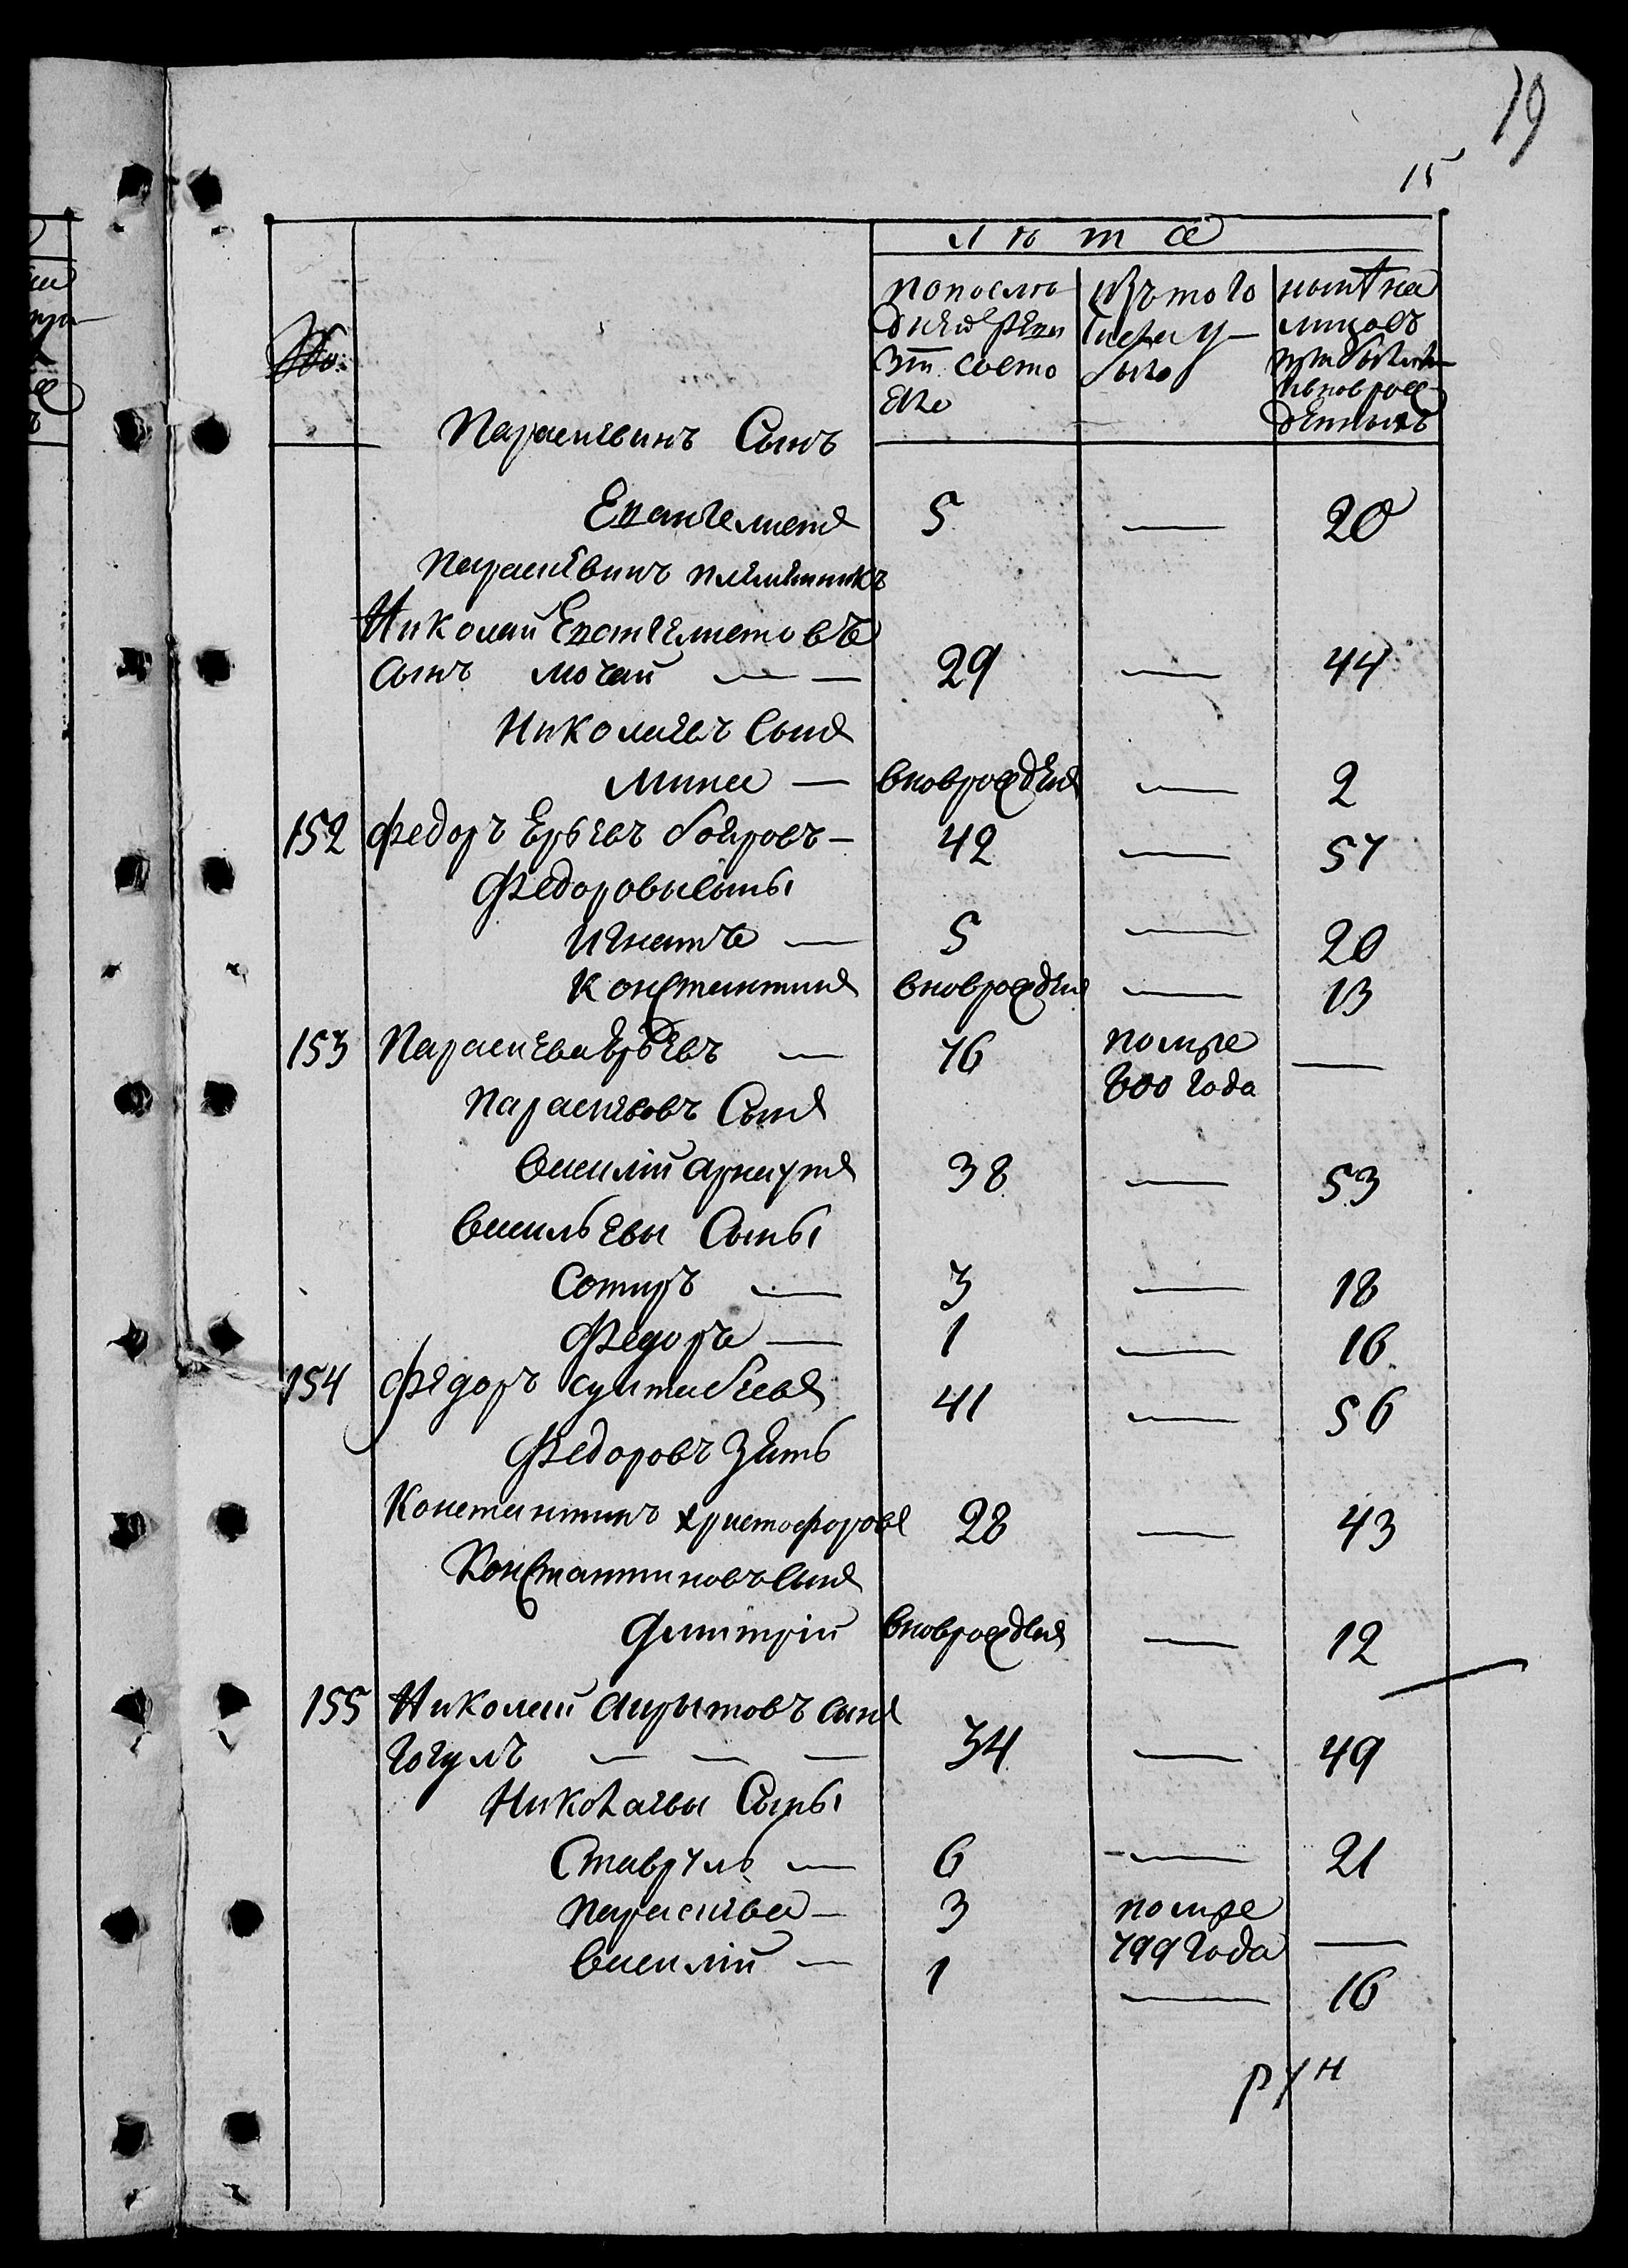 19
15
лѣта
№.
попослѣ
дней реви
зіи состо
яло
изътого
числа у
было
нынѣ на
лицовъ
прибылыхъ
ивноврож
денныхъ
Параскевинъ Сынъ
Евангелистъ 5 — 20
Параскевинъ племянникъ
Николай Евангелистовъ
сынъ мочай — — 29 — 44
Николаевъ сынъ
Мина — вноврожденъ — 2
152 Федоръ Ерьевъ бояровъ — 42 — 57
Федоровы сыны
Игнатъ — 5 — 20
Константинъ вноврожденъ — 13
153 Параскева Ерьевъ — 76 помре —
800 года
Параскевовъ Сынъ
Василій арнаутъ 38 — 53
Васильевы Сыны
Сотиръ — 3 — 18
Федоръ — 1 — 16
154 Федоръ султабеевъ 41 — 56
Федоровъ Зять
Константинъ христофоровъ 28 — 43
Константиновъ сынъ
Дмитрій вноврожденъ — 12
155 Николай сынъ
гогулъ — — — 34 — 49
Николаевы Сыны
Ставрулъ — 6 — 21
Параскева — 3 помре
799 года —
Василій — 1 — 16
рун